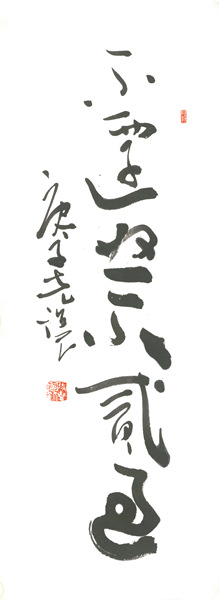 不遷怒不貳過
庚子堯